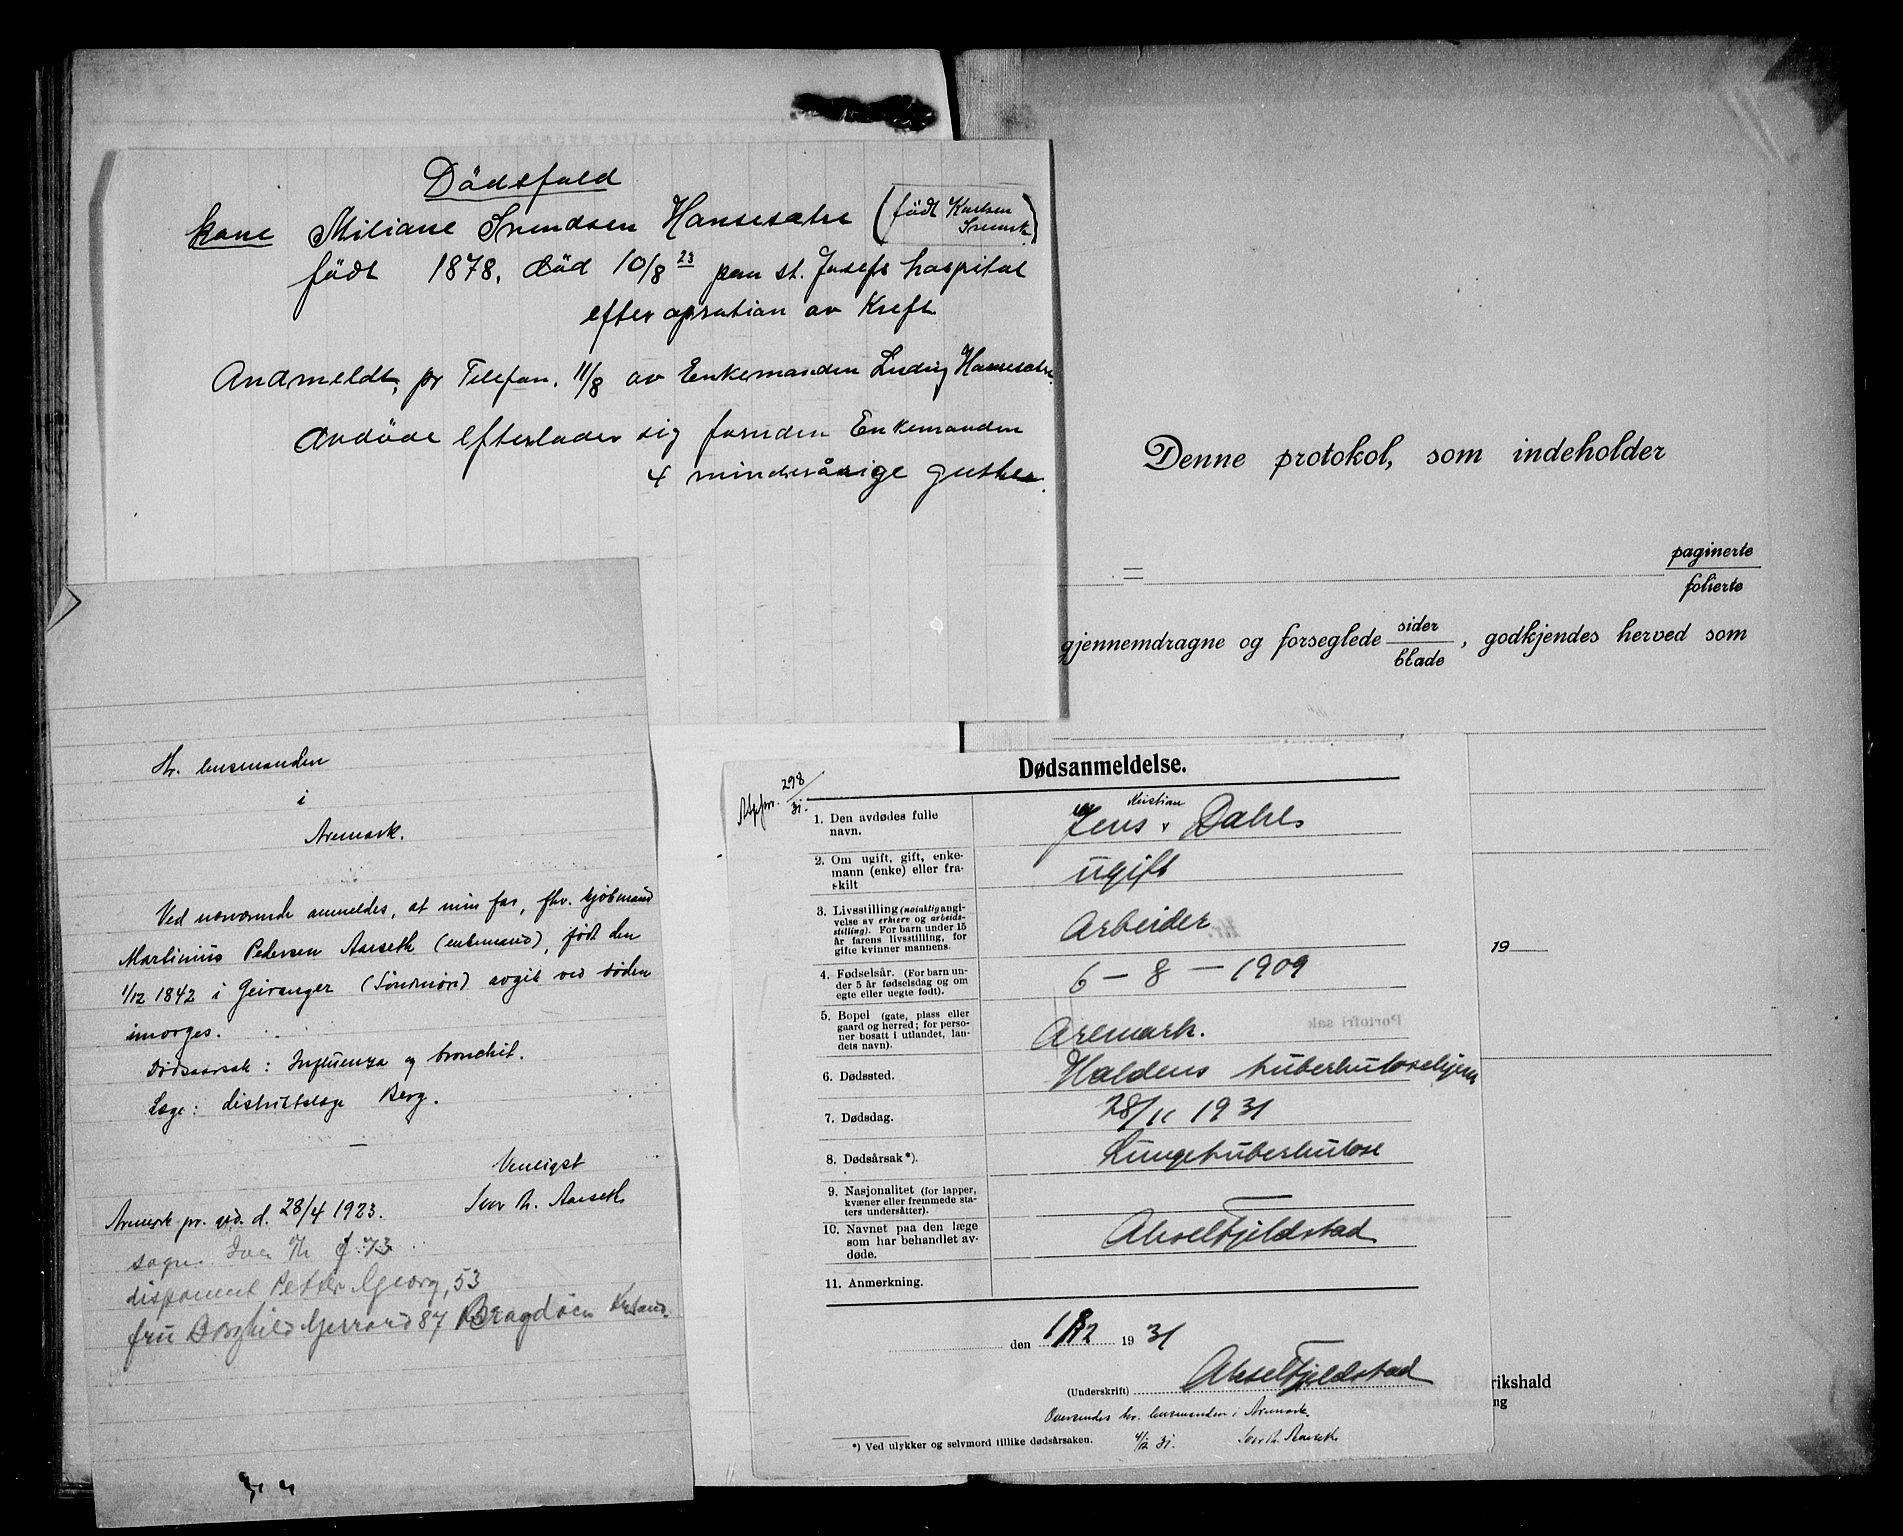 Dödsfald
kone Miliane Svendsen Hansesætre (født Karlsen
født 1878. död 10/8 23 paa st. Josefs hospital
efter opration av Kreft
Andmeldt, pr Telefon. 11/8 av Enkemanden Ludvig Hansesætre.
Avdöde efterlader sig foruden Enkemanden
4 mindreårige gutter.
Denne protokol, som indeholder
=
paginerte
folierte
gjennemdragne og forseglede sider
blade , godkjendes herved som
19
Hr. lensmanden
i
Aremark.
Ved nærværende anmeldes, at min far, fhv. kjøbmand
Martinius Pedersen Aarseth (enkemand), født den
1/12 1842 i Geiranger (Søndmøre) avgik ved døden
imorges.
Dødsaarsak: Influenza og bronchit.
Læge: distriktslæge Berg.
Venligst
Aremark pr. gd. d. 28/4 1923. Ivar Th. Aarseth
sogn. Ivar Th f. 73
disponent Petter Georg, 53
fru Borghild Gerrard 87 Bragdöen Krsand.
298
31.
Dødsanmeldelse.
1. Den avdødes fulle
navn.
Kristian
Jens v Dahl
2. Om ugift, gift, enke-
mann (enke) eller fra-
skilt
ugift
3. Livsstilling (nøiaktig angi-
velse av erhverv og arbeids-
stilling). For barn under 15
år farens livsstilling, for
gifte kvinner mannens.
Arbeider
4. Fødselsår. (For barn un-
der 5 år fødselsdag og om
egte eller uegte født).
6 - 8 - 1909
5. Bopel (gate, plass eller
gaard og herred; for perso-
ner bosatt i utlandet, lan-
dets navn).
Aremark.
Portofri sak
6. Dødssted.
Haldens tuberkulosehjem
7. Dødsdag.
28/11 1931
8. Dødsårsak*).
Lungetuberkulose
9. Nasjonalitet (for lapper,
kvæner eller fremmede sta-
ters undersåtter).
10. Navnet paa den læge
som har behandlet av-
døde.
Aksel Fjeldstad
11. Anmerkning.
den 1/12 19 31
(Underskrift) Aksel Fjeldstad
Oversendes hr. lensmanden i Aremark.
*) Ved ulykker og selvmord tillike dødsårsaken. 4/12 31. Ivar Th. Aarseth
rikshald
ng